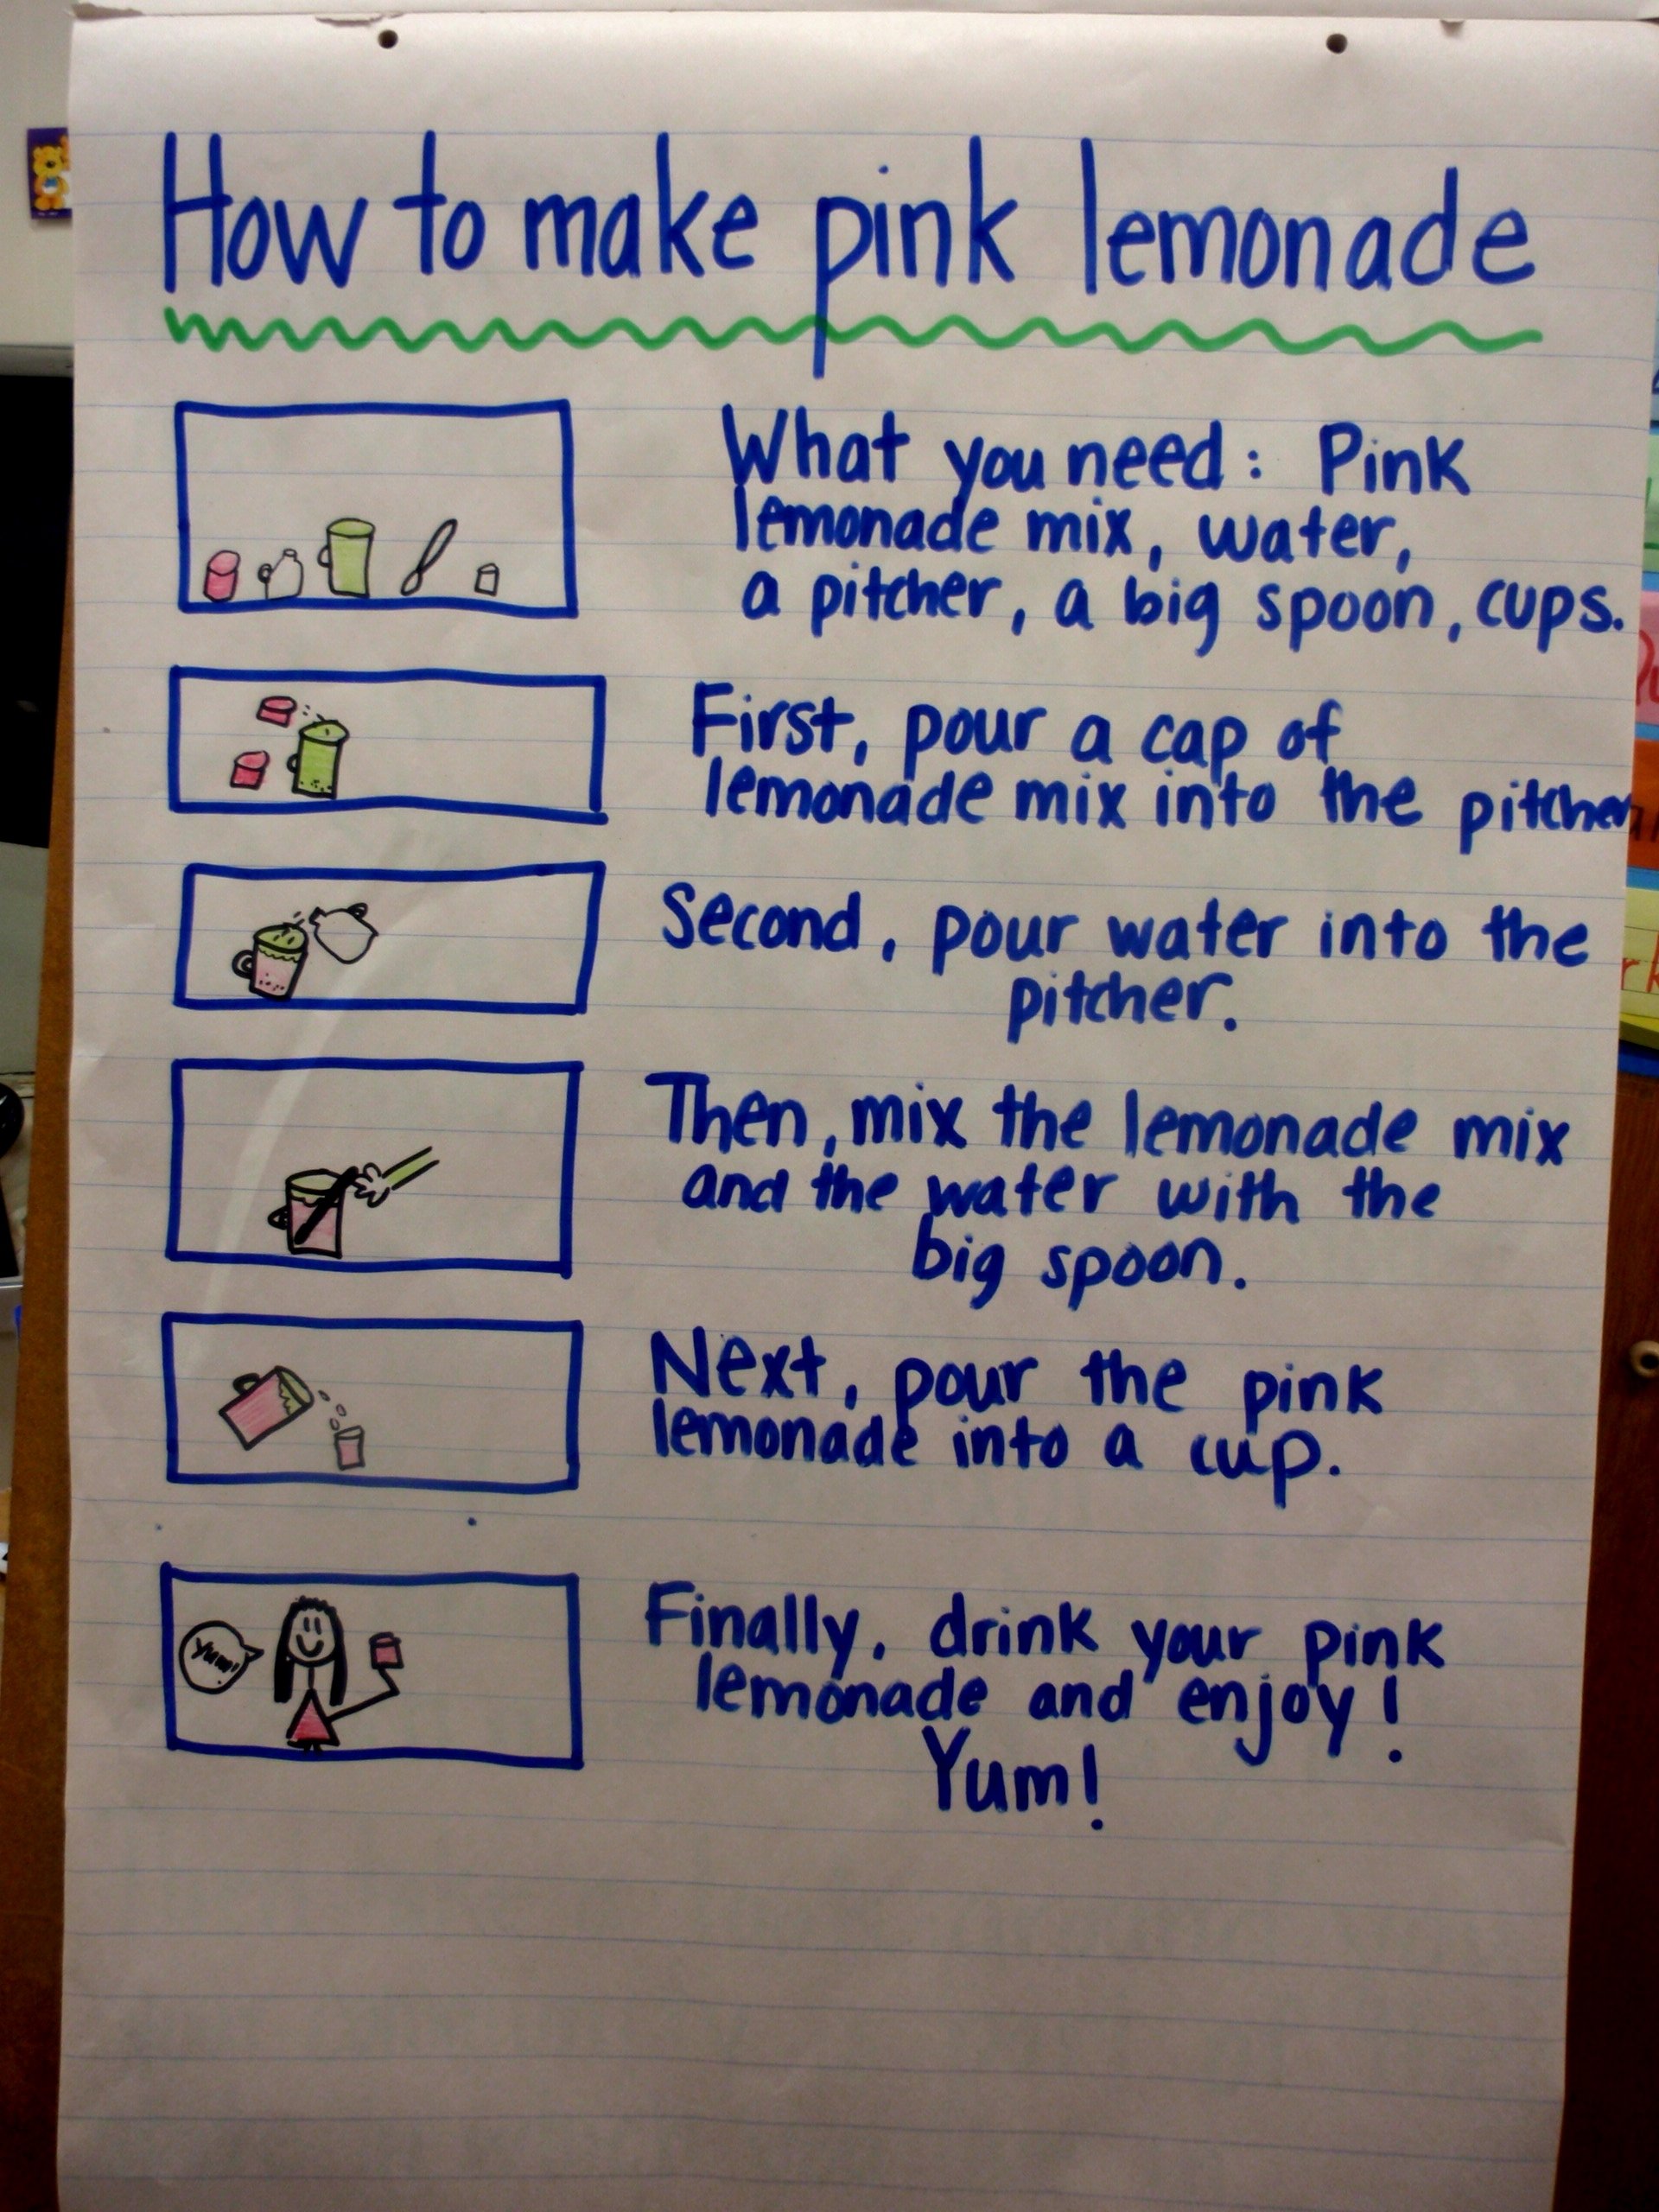 How to make pink lemonade
What you need: Pink
lemonade mix, water,
a pitcher, a big spoon, cups.
First, pour a cap of
lemonade mix into the pitcher
Second, pour water into the
pitcher.
Then, mix the lemonade mix
and the water with the
big spoon.
Next, pour the pink
lemonade into a cup.
Yum!
Finally, drink your pink
lemonade and enjoy!
Yum!